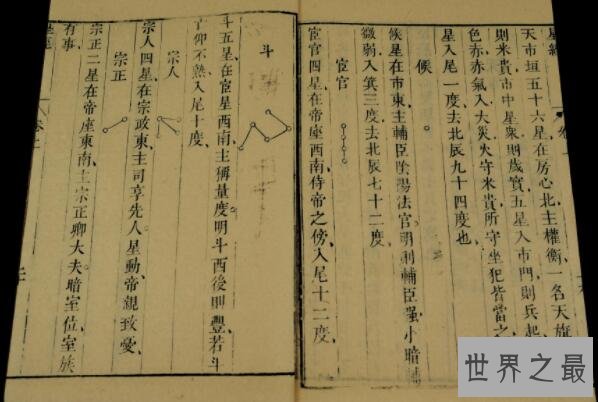 星經 卷
天市垣五十六星在房心北主權衡一名天旗
則米貴市中星衆則歲實五星入市門則兵起
色赤赤氣入大災火守米貴所守坐犯皆當之
星入尾一度去北辰九十四度也
候
候星在市東主輔臣陰陽法官明則輔臣强小暗輔
微弱入箕三度去北辰七十二度
宦官
宦官四星在帝座西南侍帝之傍、入尾十二度、
斗
斗五星在宦星西南、主稱量度、明斗西後則豐、若斗
仰不熟、入尾十度、
宗人
宗人四星在宗政東、主司享先人、星動、帝親致憂、
宗正
宗正二星在帝座東南、主宗正卿大夫、暗室位、室族
有事、
星經 卷上 二
世界之最